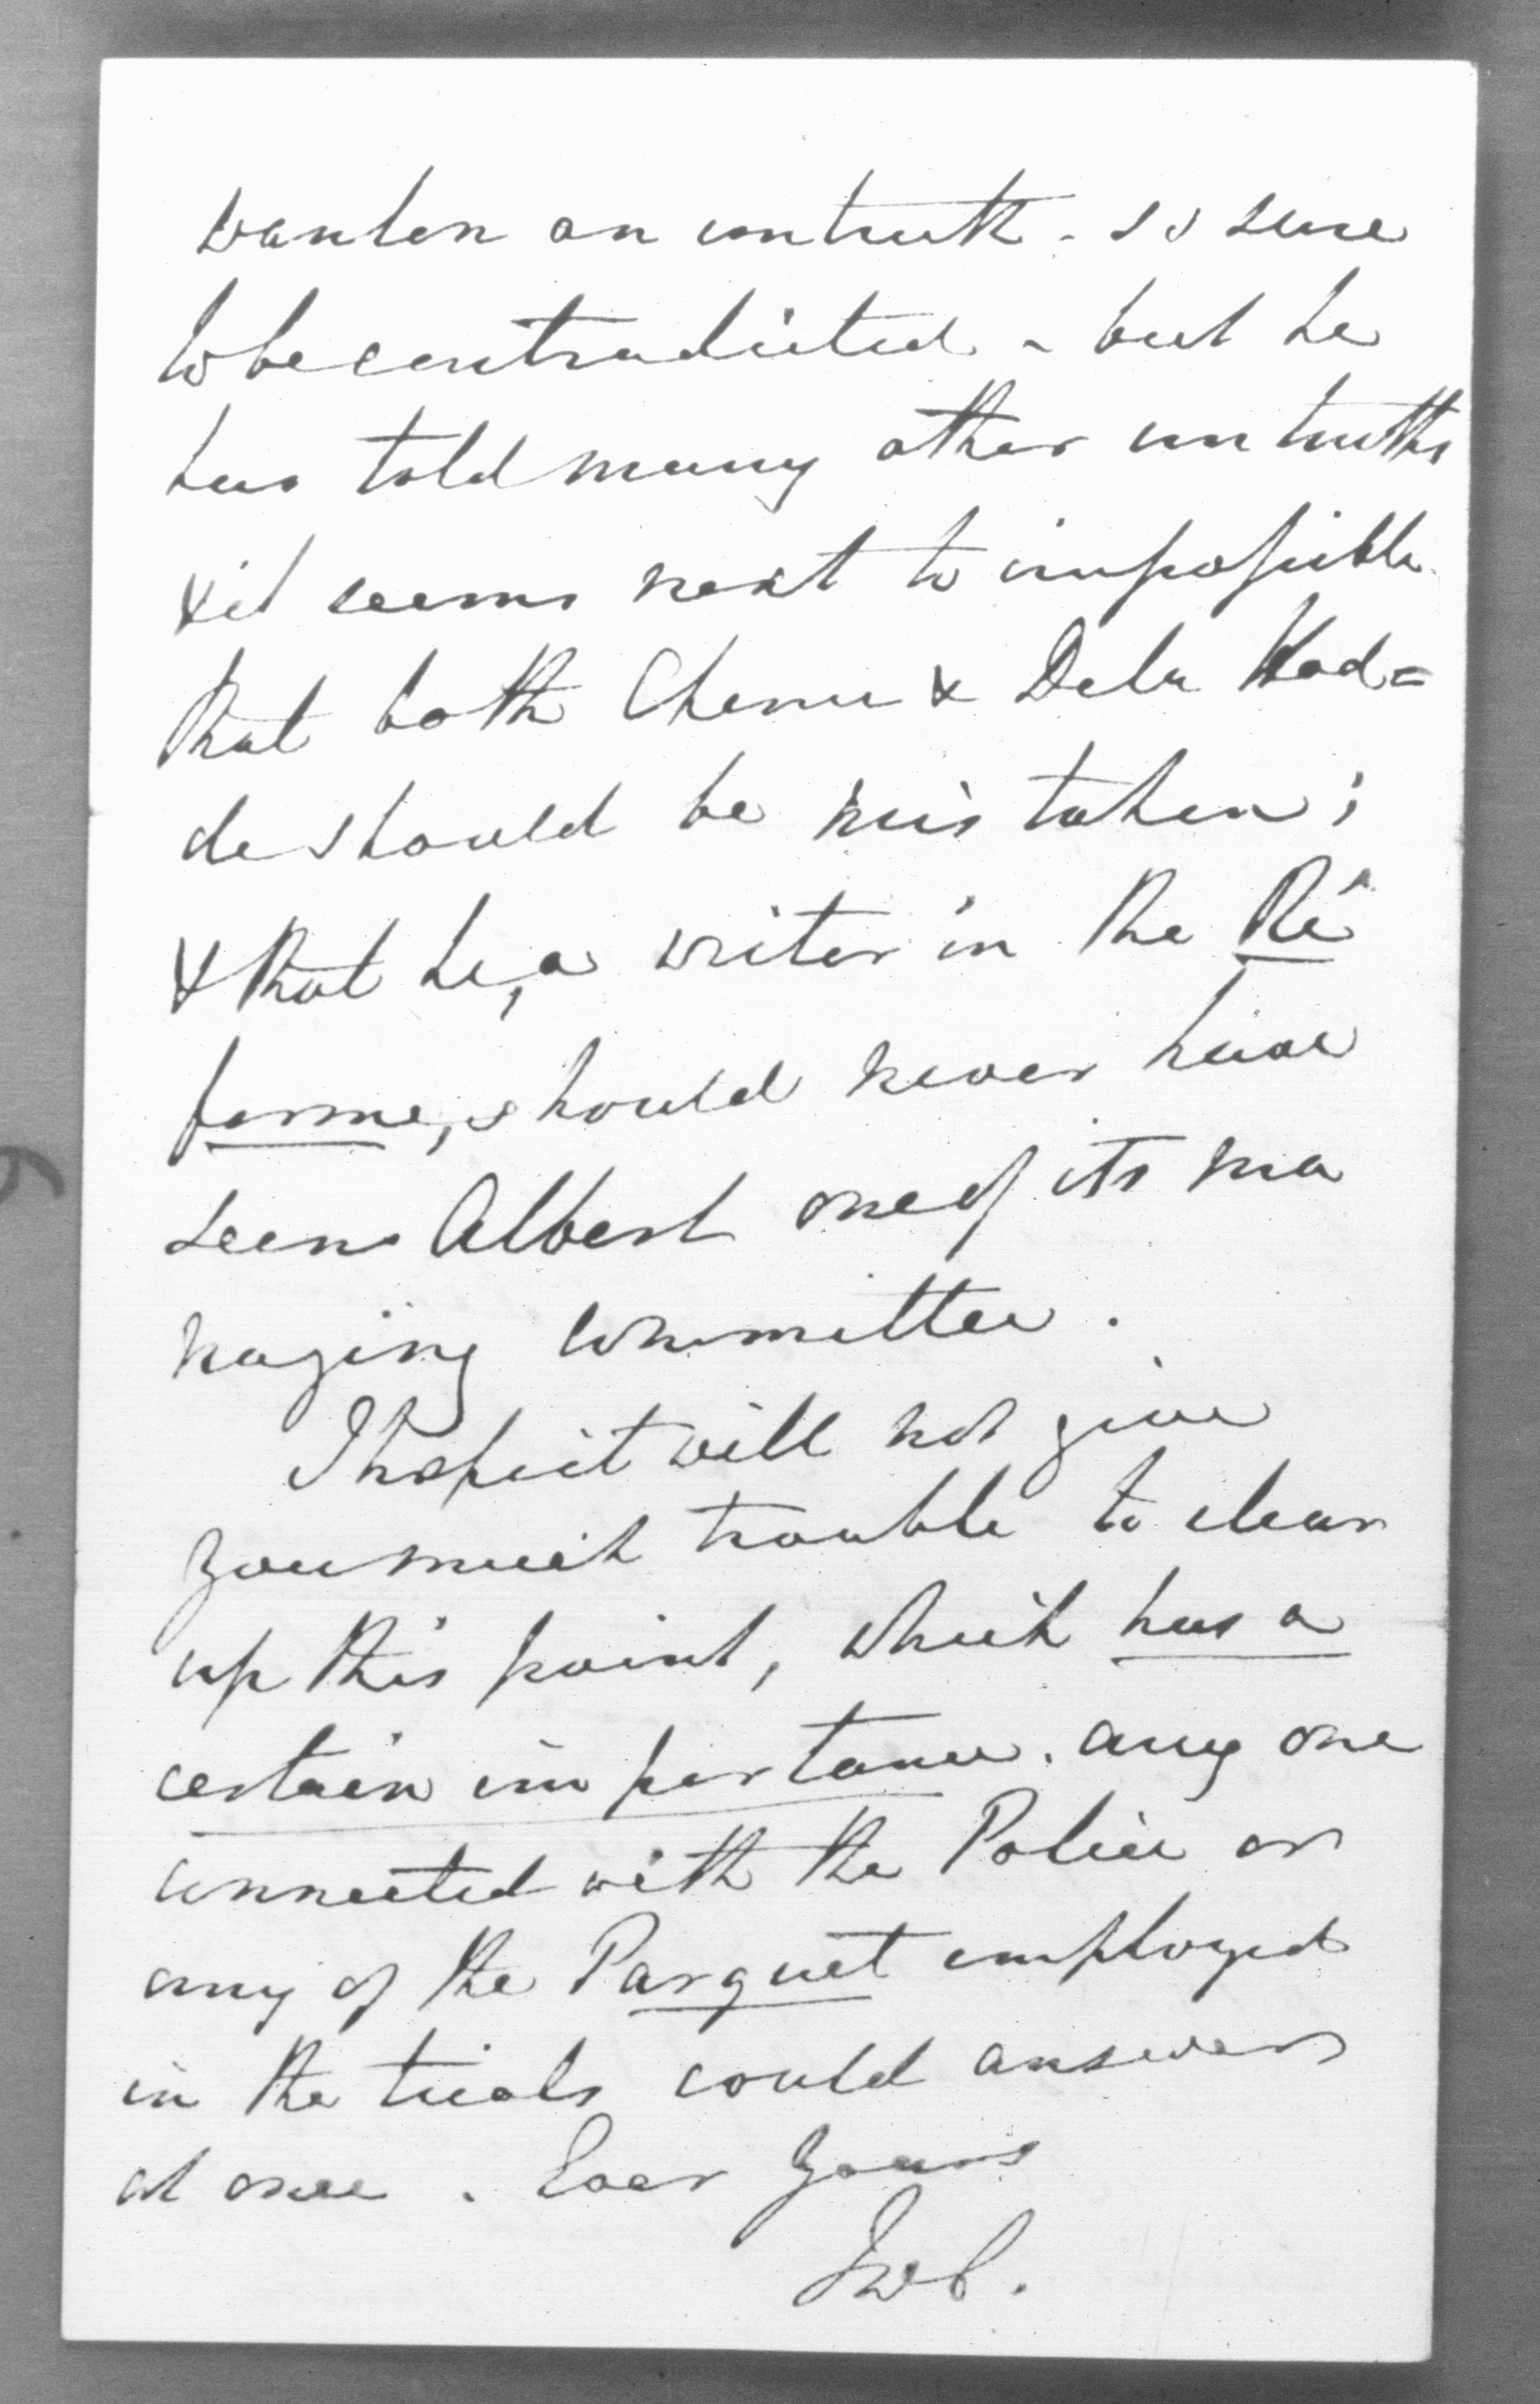 wanton an untruth - so sure
to be contradicted - but he
has told many other untruths
& it seems next to impossible
that both Chenu & Dela Hod=
de should be mistaken;
& that he, a writer in the Ré
forme, should never have
seen Albert one of its ma
naging committee.
I hope it will not give
you much trouble to clear
up this point, which has a
certain importance. any one
connected with the Police or
any of the Parquet employed
in the trials could answer
at once. Ever yours